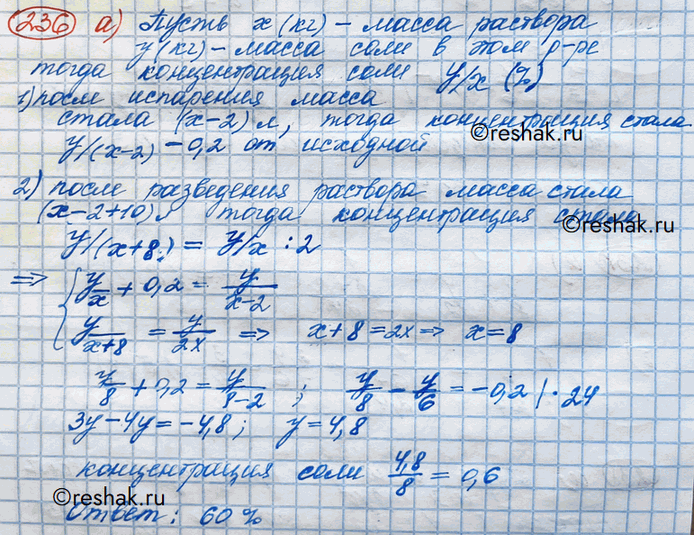 236 а) Пусть x (кг) - масса раствора
y (кг) - масса соли в этом р-ре
тогда концентрация соли y/x (%)
1) после испарения масса
стала (x-2) л, тогда концентрация стала
©reshak.ru
y/(x-2) - 0,2 от исходной
2) после разведения раствора масса стала
(x-2+10), тогда концентрация стала
©reshak.ru
y/(x+8) = y/x : 2
=> { y/x + 0,2 = y/(x-2)
y/(x+8) = y/2x => x+8=2x => x=8
y/8 + 0,2 = y/(8-2) ; y/8 - y/6 = -0,2 | · 24
3y-4y=-4,8; y=4,8
концентрация соли 4,8/8 = 0,6
©reshak.ru
Ответ: 60%